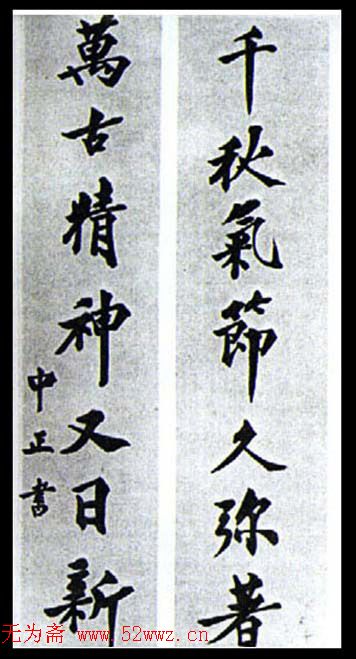 千秋氣節久弥著
萬古精神又日新
中正書
无为斋 www.52wwz.cn